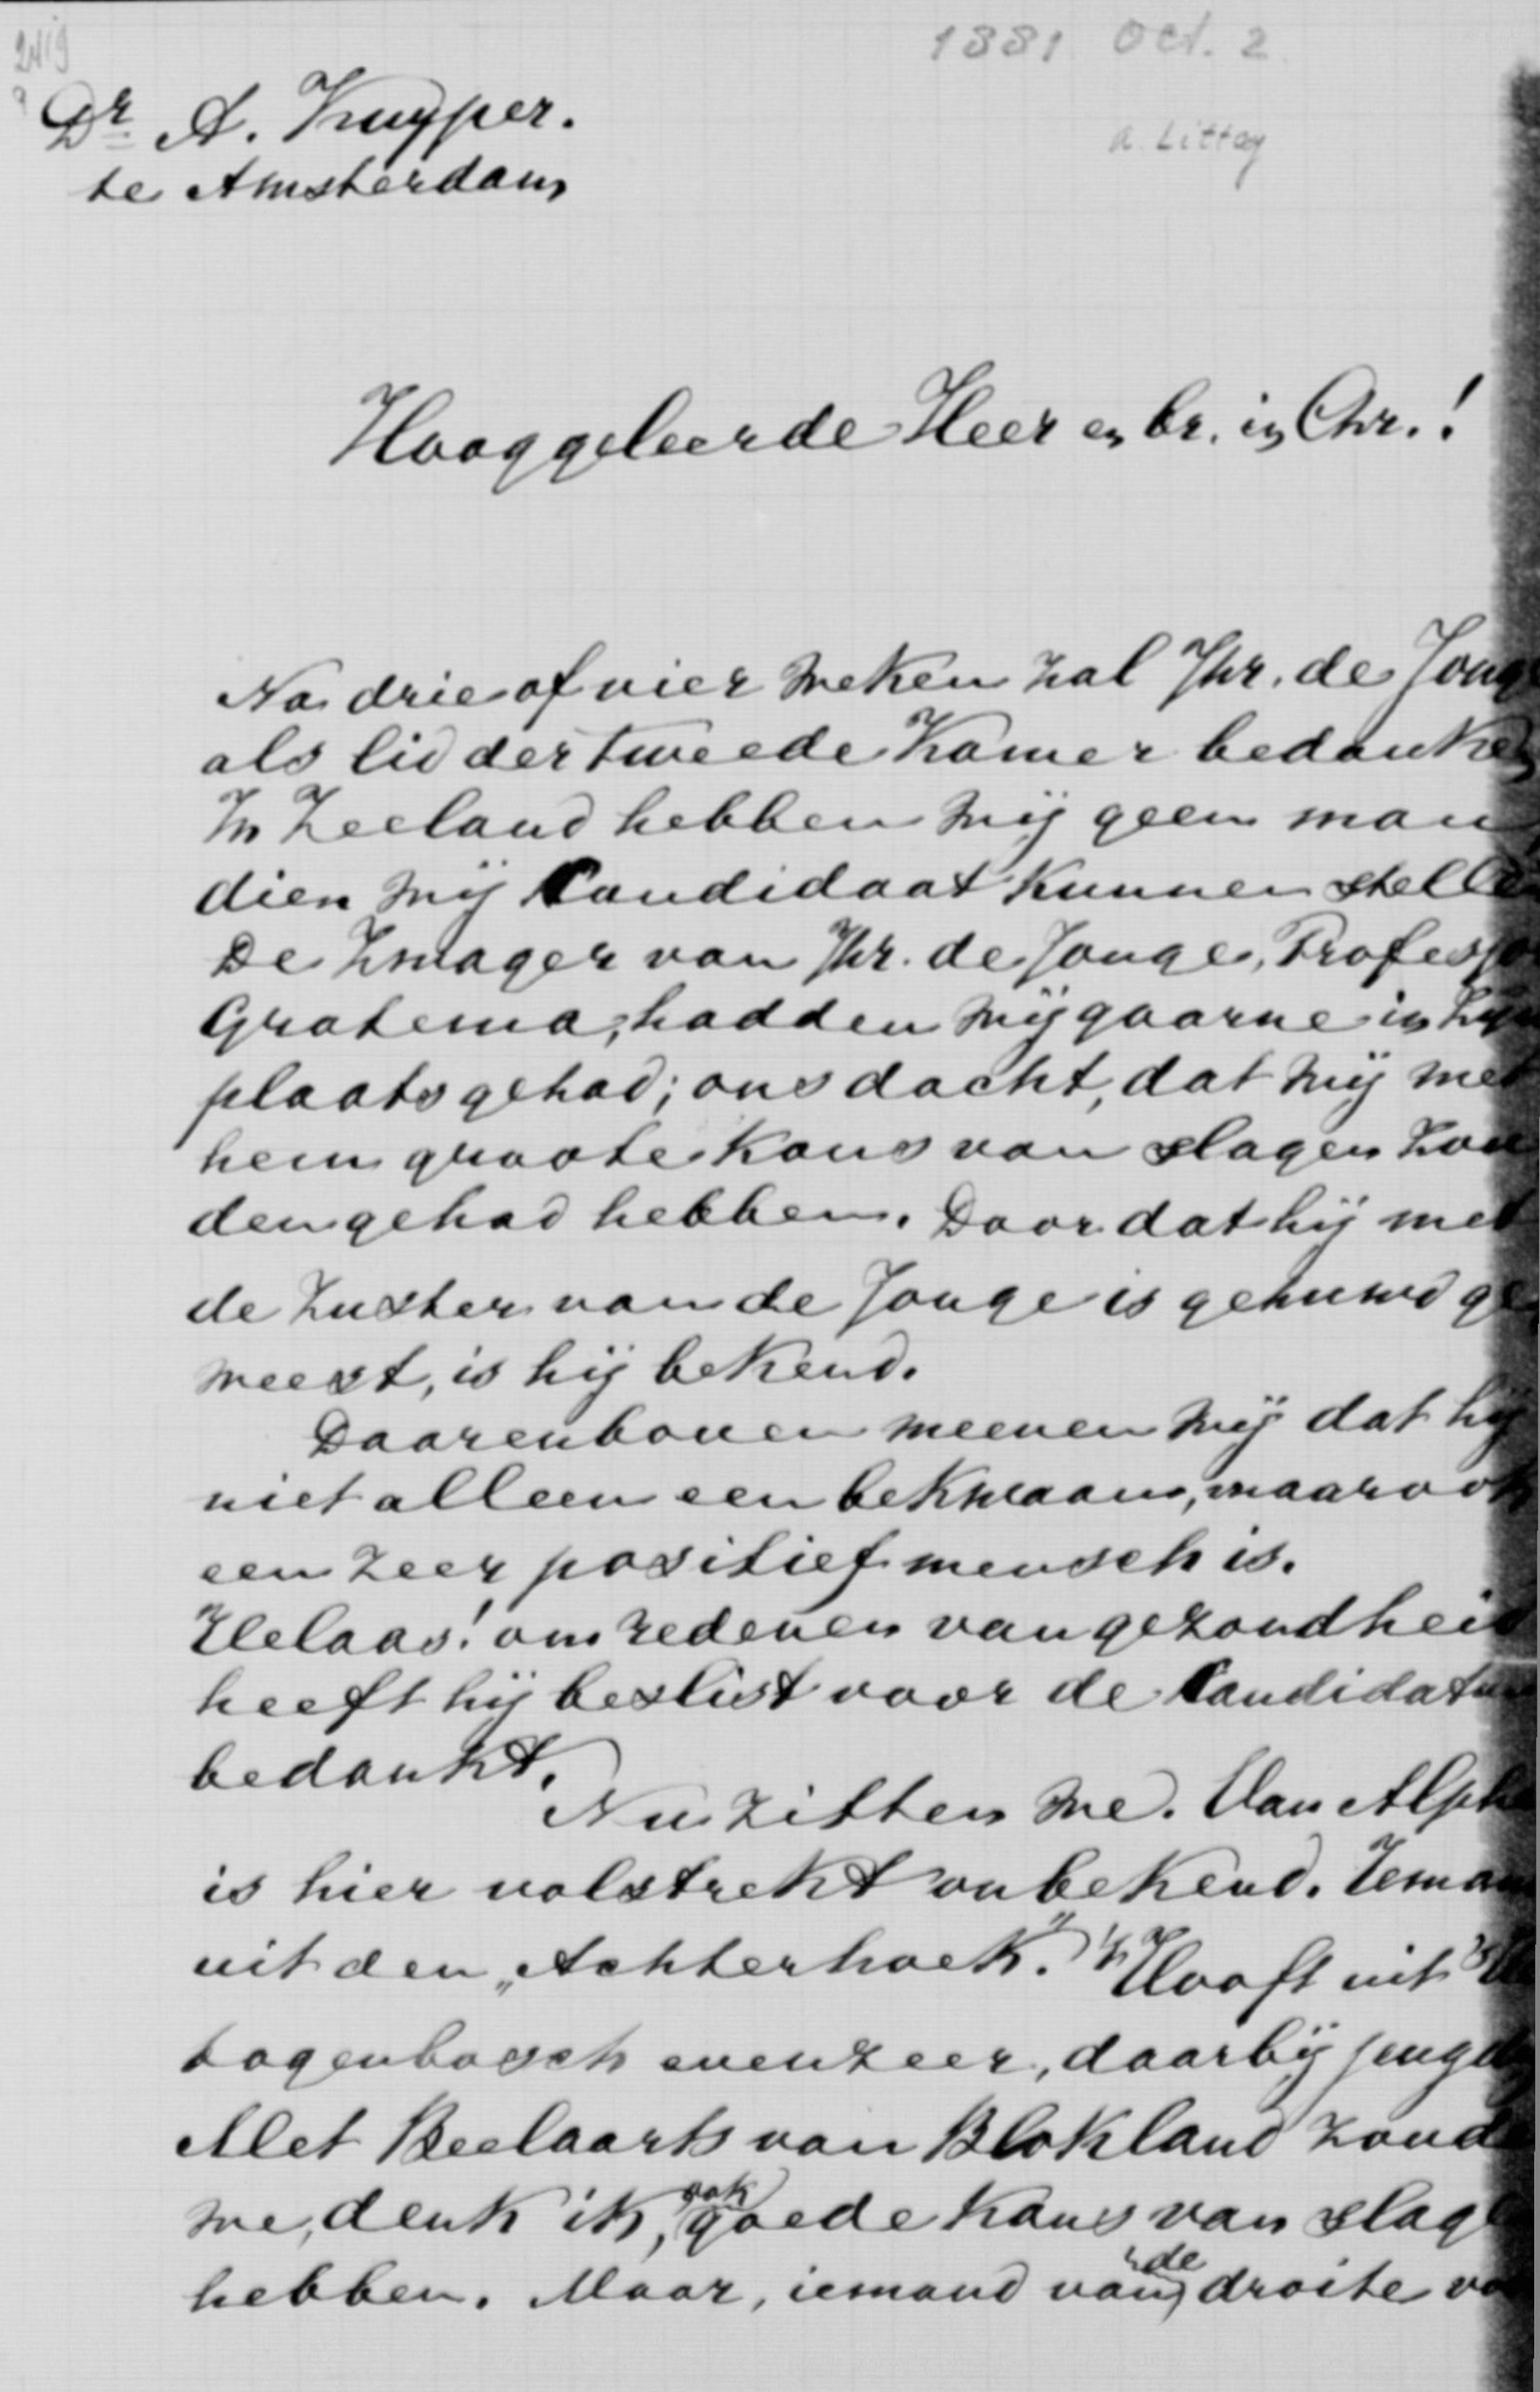 2419
1881 Oct. 2
a. Littooy
Dr A. Kuyper.
te Amsterdam
Hooggeleerde Heer en br. in Chr.!
Na drie of vier weken zal Jhr. de Jong
als lid der tweede Kamer bedanken
In Zeeland hebben wij geen man
dien wij Candidaat kunnen stelle
De Zwager van Jhr. de Jonge, Professo
Gratema, hadden wij gaarne in zijn
plaats gehad; ons dacht, dat wij met
hem groote kans van slagen zou
den gehad hebben. Door dat hij met
de Zuster van de Jonge is gehuwd ge
weest, is hij bekend.
Daarenboven meenen wij dat hij
niet alleen een bekwaam, maar ook
een zeer positief mensch is.
Helaas! om redenen van gezondheid
heeft hij beslist voor de Candidatuu
bedankt.
Nu zitten we. Van Alphe
is hier volstrekt onbekend. Ieman
uit den „Achterhoek." 't Hooft uit 's He
togenbosch evenzeer, daarbij jeugdig
Met Beelaarts van Blokland zoude
we, denk ik, ook goede kans van slage
hebben. Maar, iemand van de droite vo